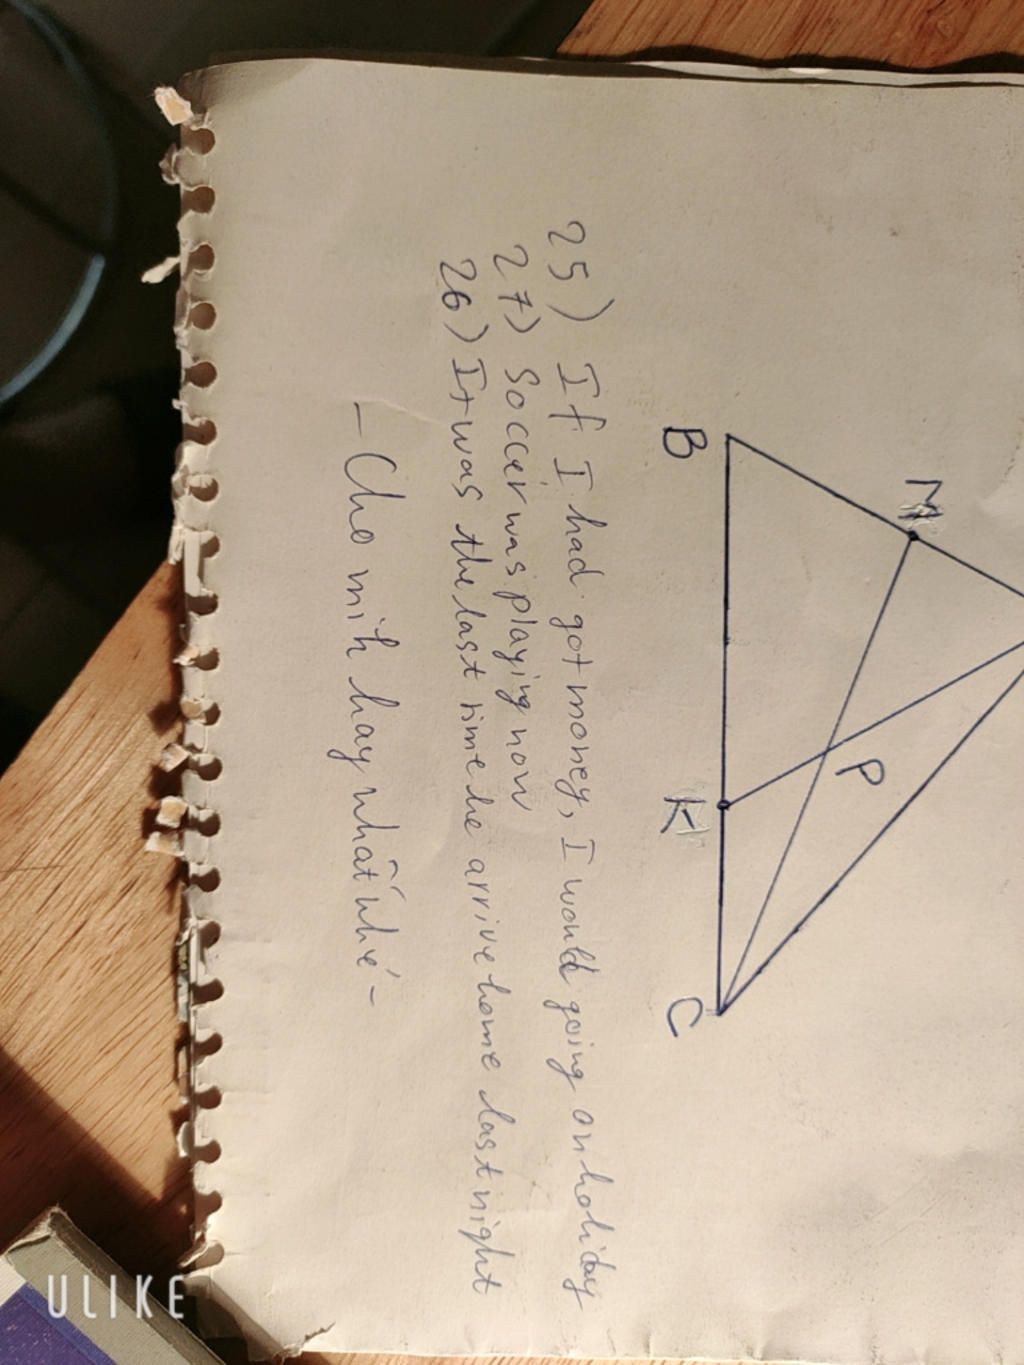 M
P
B
K
C
25) If I had got money, I would going on holiday
27) Soccer was playing now
26) It was the last time he arrive home last night
- Cho mih hay nhất nhé -
ULIKE